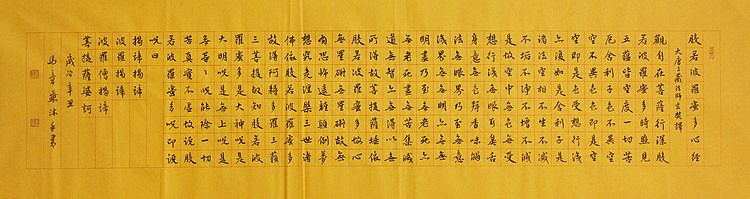 般若波羅蜜多心經
大唐三藏法師玄奘譯
觀自在菩薩行深般
若波羅蜜多時照見
五蘊皆空度一切苦
厄舍利子色不異空
空不異色色即是空
空即是色受想行識
亦復如是舍利子是
諸法空相不生不滅
不垢不淨不增不減
是故空中無色無受
想行識無眼耳鼻舌
身意無色聲香味觸
法無眼界乃至無意
識界無無明亦無無
明盡乃至無老死亦
無老死盡無苦集滅
道無智亦無得以無
所得故菩提薩埵依
般若波羅蜜多故心
無罣礙無罣礙故無
有恐怖遠離顛倒夢
想究竟涅槃三世諸
佛依般若波羅蜜多
故得阿耨多羅三藐
三菩提故知般若波
羅蜜多是大神呪是
大明呪是無上呪是
無等〻呪能除一切
苦真實不虛故說般
若波羅蜜多呪即說
呪曰
揭諦揭諦
波羅揭諦
波羅僧揭諦
菩提薩婆訶
歲次辛丑
馬 沐手書